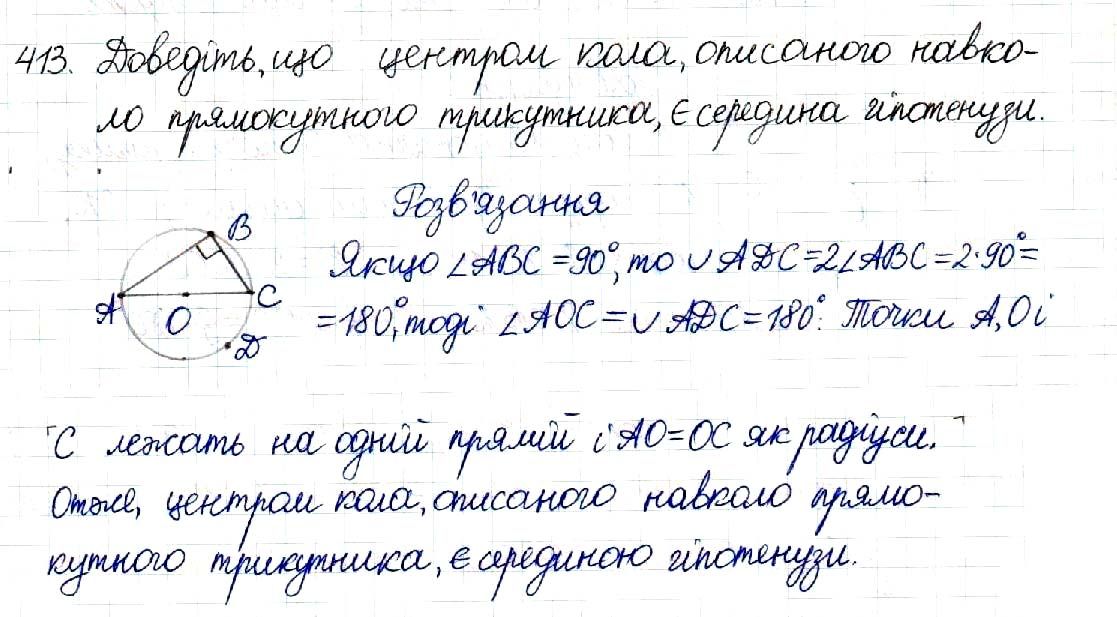 413. Доведіть, що центром кола, описаного навко-
ло прямокутного трикутника, є середина гіпотенузи.
Розв'язання
B
Якщо ∠ABC = 90°, то ∪ ADC = 2∠ABC = 2·90° =
A C
O
= 180°, тоді ∠AOC = ∪ ADC = 180°. Точки A, O і
D
C лежать на одній прямій і AO = OC як радіуси.
Отже, центром кола, описаного навколо прямо-
кутного трикутника, є серединою гіпотенузи.